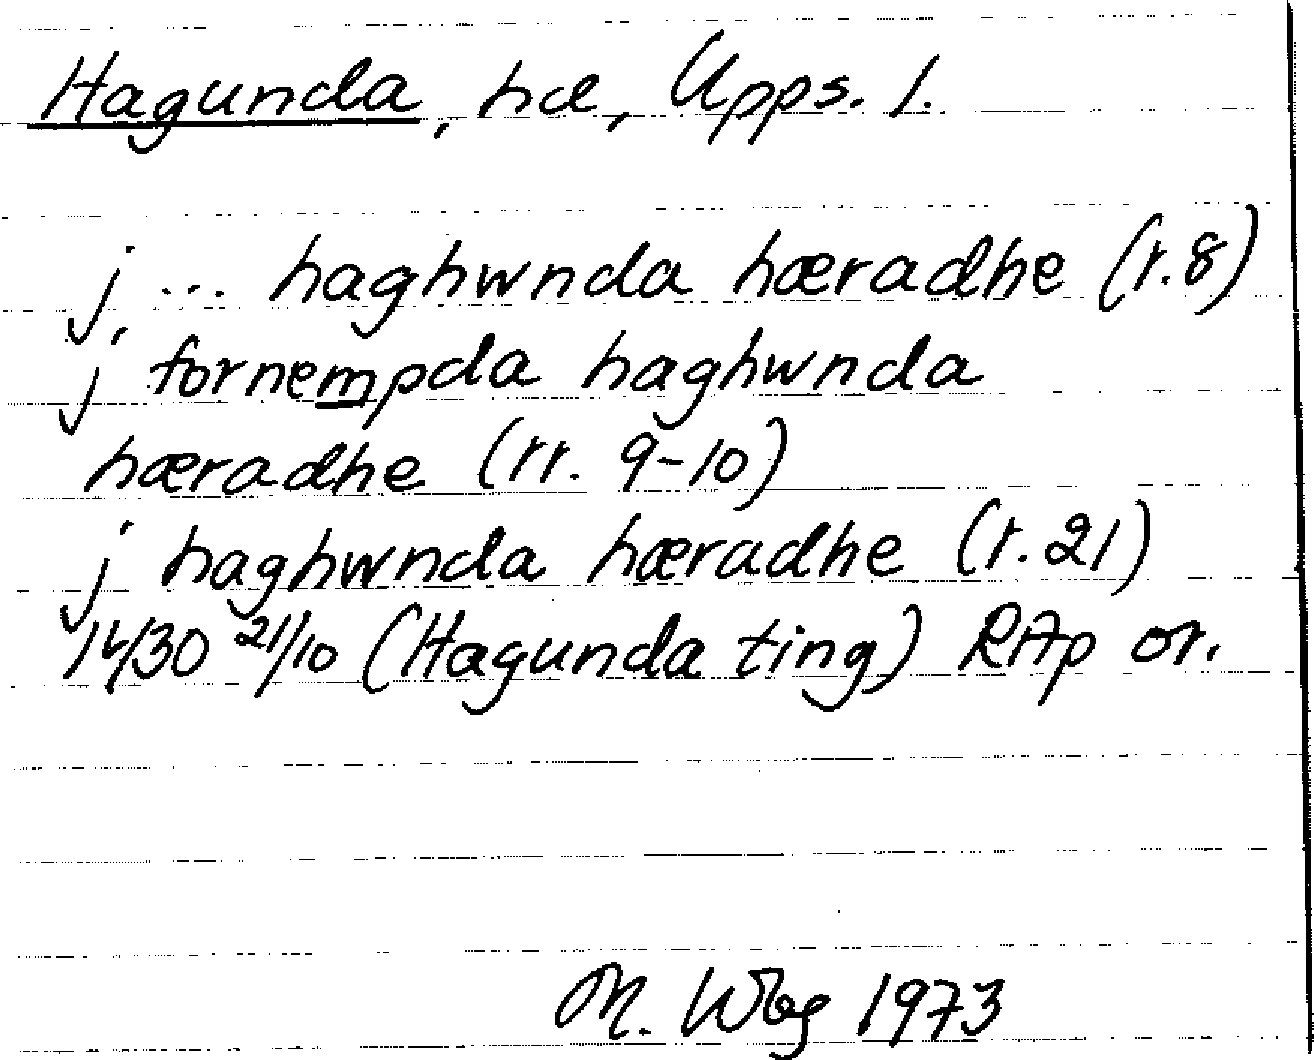 Hagunda, hd, Upps. l.
j ... haghwnda hæradhe (r. 8)
j fornempda haghwnda
hæradhe (rr. 9-10)
j haghwnda hæradhe (r. 21)
1430 21/10 (Hagunda ting) RAp or.
M. Wbg 1973